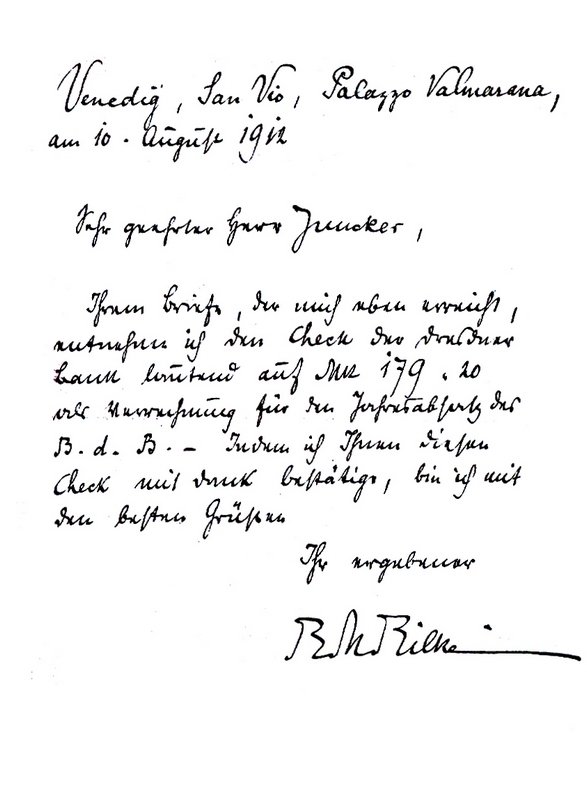 Venedig, San Vio, Palazzo Valmarana,
am 10. August 1912
Sehr geehrter Herr Juncker,
Ihrem Briefe, der mich eben erreicht,
entnehm ich den Check der Dresdner
Bank lautend auf Mk 179.20
als Verrechnung für den Jahresabsatz des
B. d. B. – Indem ich Ihnen diesen
Check mit Dank bestätige, bin ich mit
den besten Grüßen
Ihr ergebener
R M Rilke